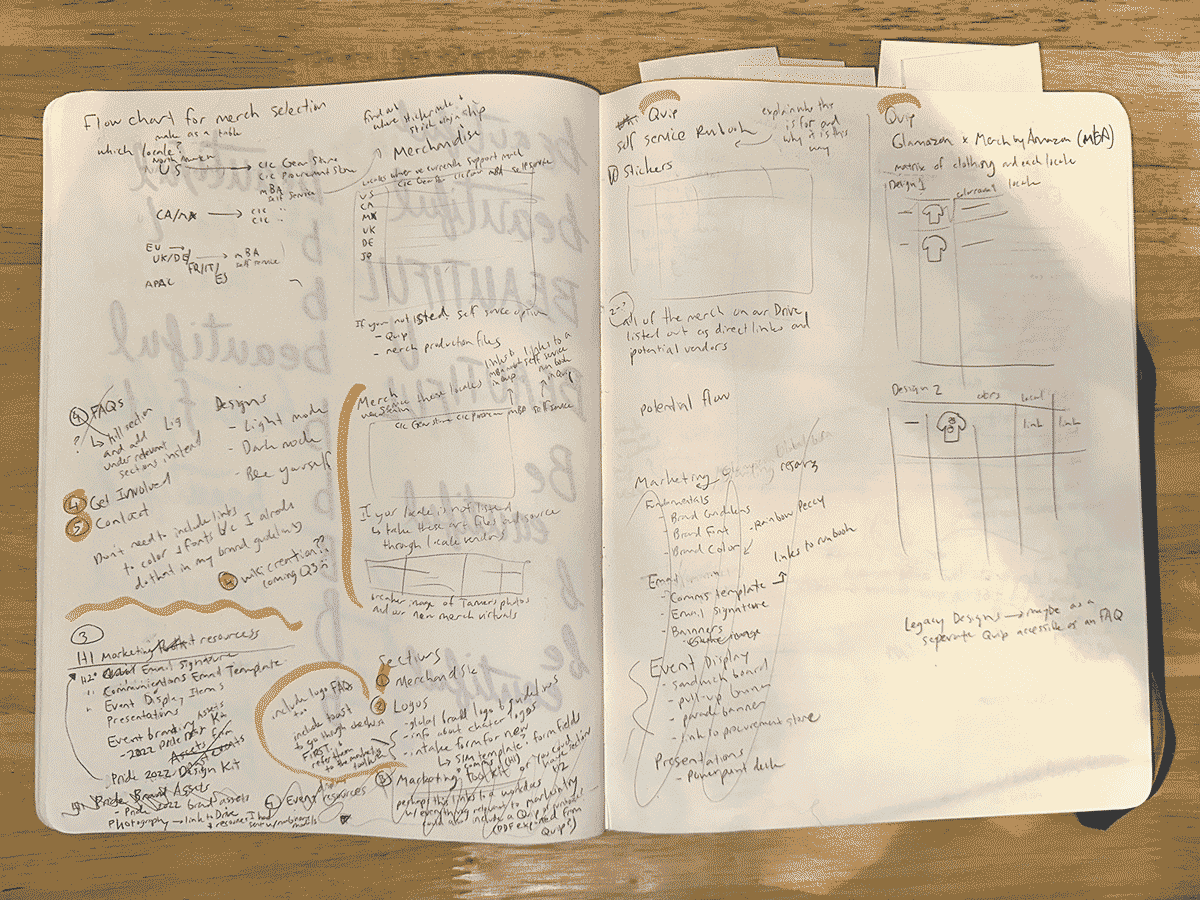 Flow chart for merch selection
make as a table
which locale?
North America
US → CIC Gear Store
CIC Procurement Store
MBA
Self Service
CA/MX → CIC "
CIC "
EU →
UK/DE/ → MBA
FR/IT/ self service
ES
APAC
④ FAQs
? ↳ kill section
and add
under relevant
sections instead
Designs
- Light mode
- Dark mode
- Bee yourself
④ Get Involved
⑤ Contact
Don't need to include links
to color + fonts b/c I already
do that in my brand guidelines
④ wiki creation??
coming Q3
③
H1 Marketing resources
H2 Email Signature
" Communications Email Template
" Event Display Items
Presentations
Event branding Assets
- 2022 Pride Kit
Pride 2022 Design Kit
Pride Brand Assets
- Pride 2022 Brand assets
Photography → link to Drive
④ Event resources
find out
where sticker mule +
sticker ship
Merchandise
Locales where we currently support merch
CIC Gear Store CIC MBA self service
US
CA
MX
UK
DE
JP
If your not listed self source option
- Quip
- merch production files
Merch
these locales
links to
MBA
in Quip
links to a
self service
run book
in Quip
CIC Gear Store CIC Procurem MBA self service
If your locale is not listed
↳ take these art files and source
through locale vendors
breaker image of photos
and our new merch virtuals
Sections
① Merchandise
② Logos
- global brand logo + guidelines
- info about chapter logos
- intake form for new
↳ SIM template + form fields
③ Marketing Toolkit or
perhaps this links to a workdocs
w/ everything relevant to marketing
could also include a Quip
(PDF exported from
Quip?)
include logo FAQs
too
include toast
to go through checklist
FIRST
refer them to
to the marketing
toolkit
Quip
self service Runbook
explain who this
is for and
why it is this
way
① Stickers
2-? all of the merch on our Drive
listed out as direct links and
potential vendors
potential flow
Marketing
Fundamentals
- Brand Guidelines
- Brand Font
- Brand Color
- Rainbow Peccy
Email
- Comms template
links to runbook
- Email signature
- Banners
Event Display
- sandwich board
- pull-up banner
- parade banner
- link to procurement store
Presentations
- Powerpoint deck
Quip
Glamazon x Merch by Amazon (MBA)
matrix of clothing and each locale
Design 1
locale
Design 2
colors
local
link
link
Legacy Designs → maybe as a
seperate Quip accessible as an FAQ